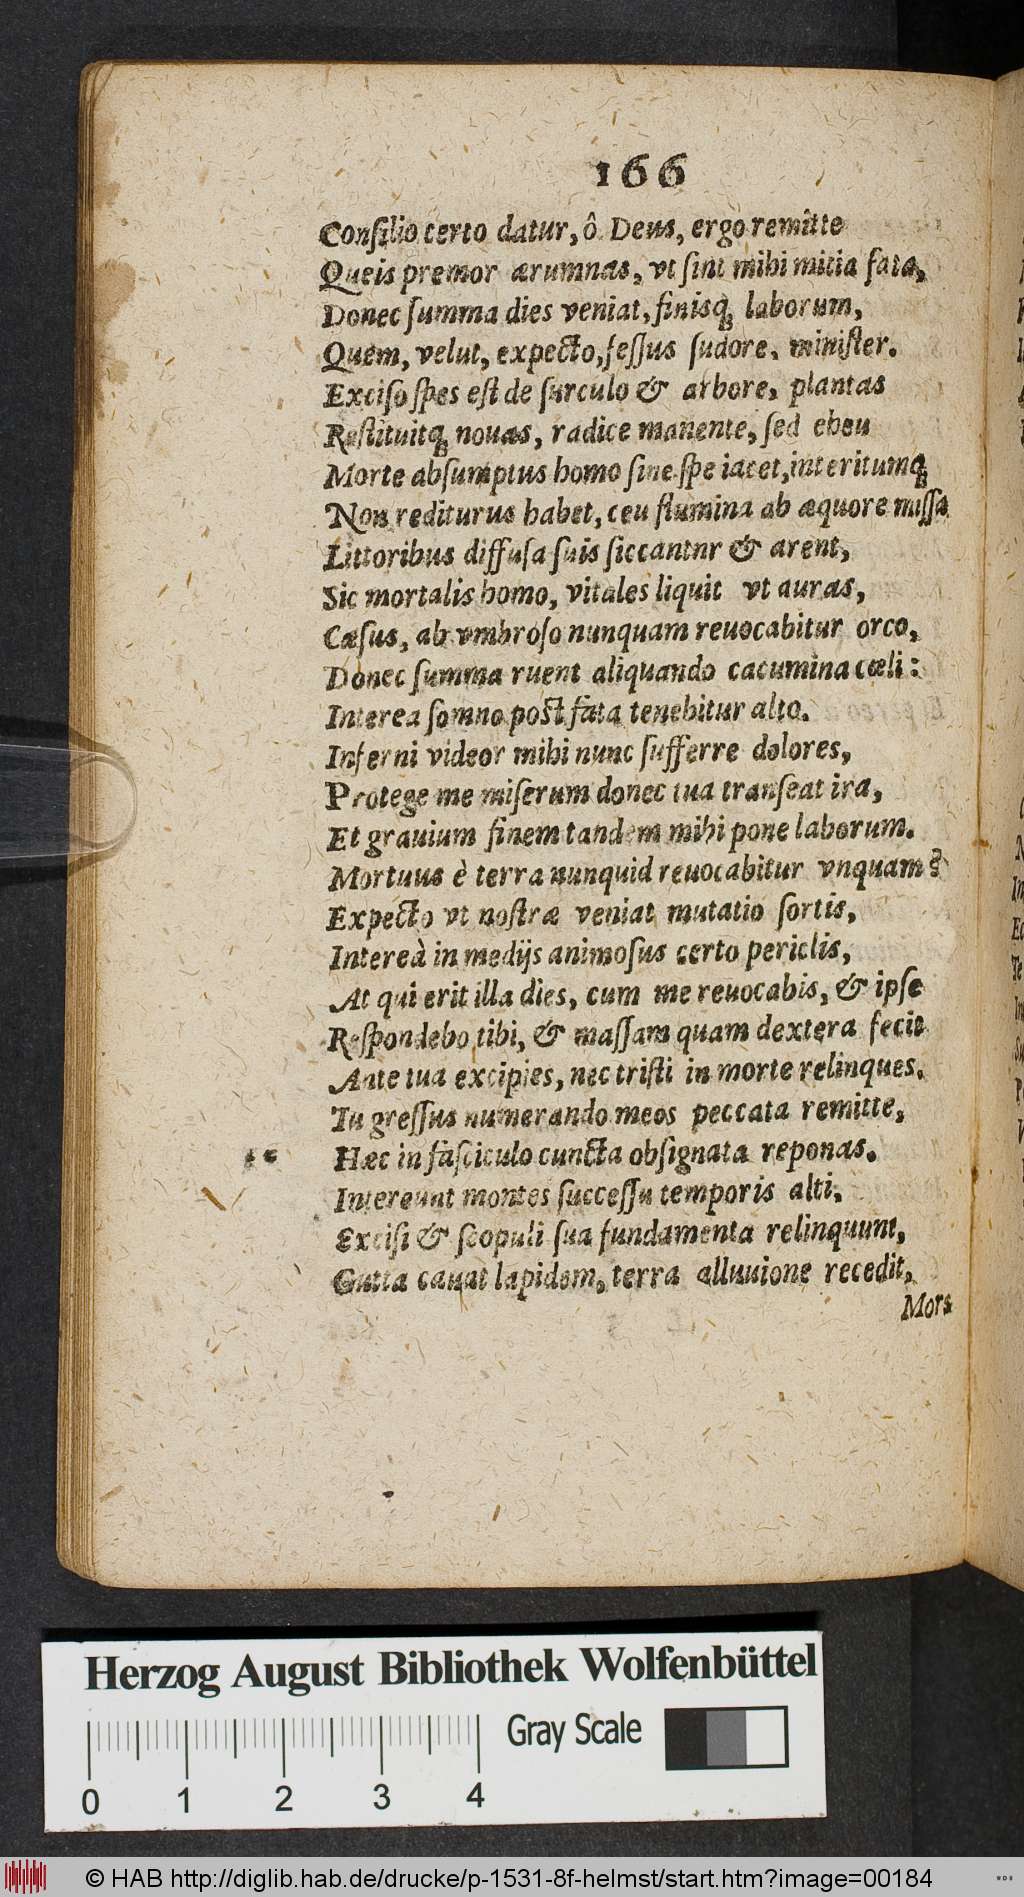 166
Conſilio certo datur, ô Deus, ergo remitte
Queis premor ærumnas, vt ſint mihi mitia fata,
Donec ſumma dies veniat, finisq́; laborum,
Quem, velut, expecto, feſſus ſudore, miniſter.
Exciſo ſpes eſt de ſurculo & arbore, plantas
Reſtituitq́; nouas, radice manente, ſed eheu
Morte abſumptus homo ſine ſpe iacet, interitumq́;
Non rediturus habet, ceu flumina ab æquore miſſa
Littoribus diffuſa ſuis ſiccantnr & arent,
Sic mortalis homo, vitales liquit vt auras,
Cæſus, ab vmbroſo nunquam reuocabitur orco,
Donec ſumma ruent aliquando cacumina cœli:
Interea ſomno poſt fata tenebitur alto.
Inferni videor mihi nunc ſufferre dolores,
Protege me miſerum donec tua tranſeat ira,
Et grauium finem tandem mihi pone laborum.
Mortuus è terra nunquid reuocabitur vnquam?
Expecto vt noſtræ veniat mutatio ſortis,
Intereà in medijs animoſus certo periclis,
At qui erit illa dies, cum me reuocabis, & ipſe
Reſpondebo tibi, & maſſam quam dextera fecit
Ante tua excipies, nec triſti in morte relinques.
Tu greſſus numerando meos peccata remitte,
Hæc in faſciculo cuncta obſignata reponas.
Intereunt montes ſucceſſu temporis alti,
Exciſi & ſcopuli ſua fundamenta relinquunt,
Gutta cauat lapidem, terra alluuione recedit,
Mors
Herzog August Bibliothek Wolfenbüttel
Gray Scale
0 1 2 3 4
© HAB http://diglib.hab.de/drucke/p-1531-8f-helmst/start.htm?image=00184